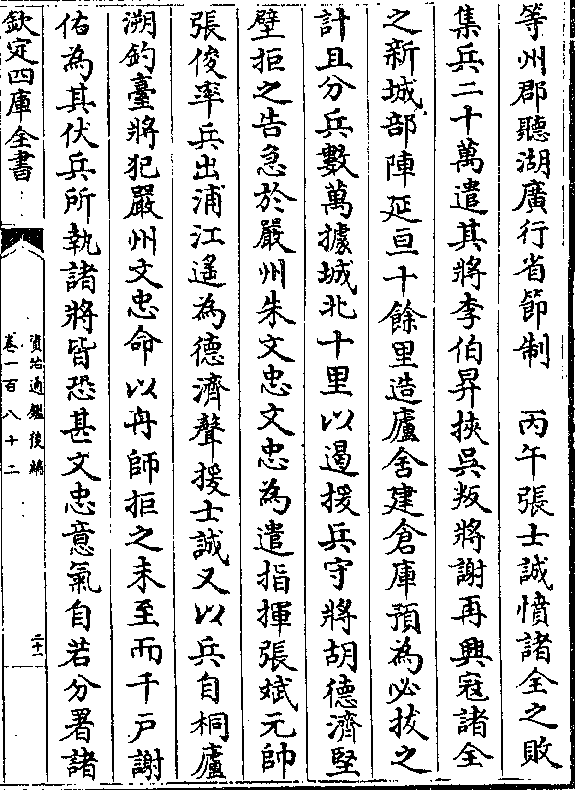 等州郡聽湖廣行省節制　丙午張士誠憤諸全之敗
集兵二十萬遣其將李伯昇挾吳叛將謝再興寇諸全
之新城部陣延亘十餘里造廬舍建倉庫預為必拔之
計且分兵數萬據城北十里以遏援兵守將胡德濟堅
壁拒之告急於嚴州朱文忠文忠為遣指揮張斌元帥
張俊率兵出浦江遙為德濟聲援士誠又以兵自桐廬
溯釣臺將犯嚴州文忠命以舟師拒之未至而千戶謝
佑為其伏兵所執諸將皆恐甚文忠意氣自若分署諸
欽定四庫全書
資治通鑑後編
卷一百八十二
二十一